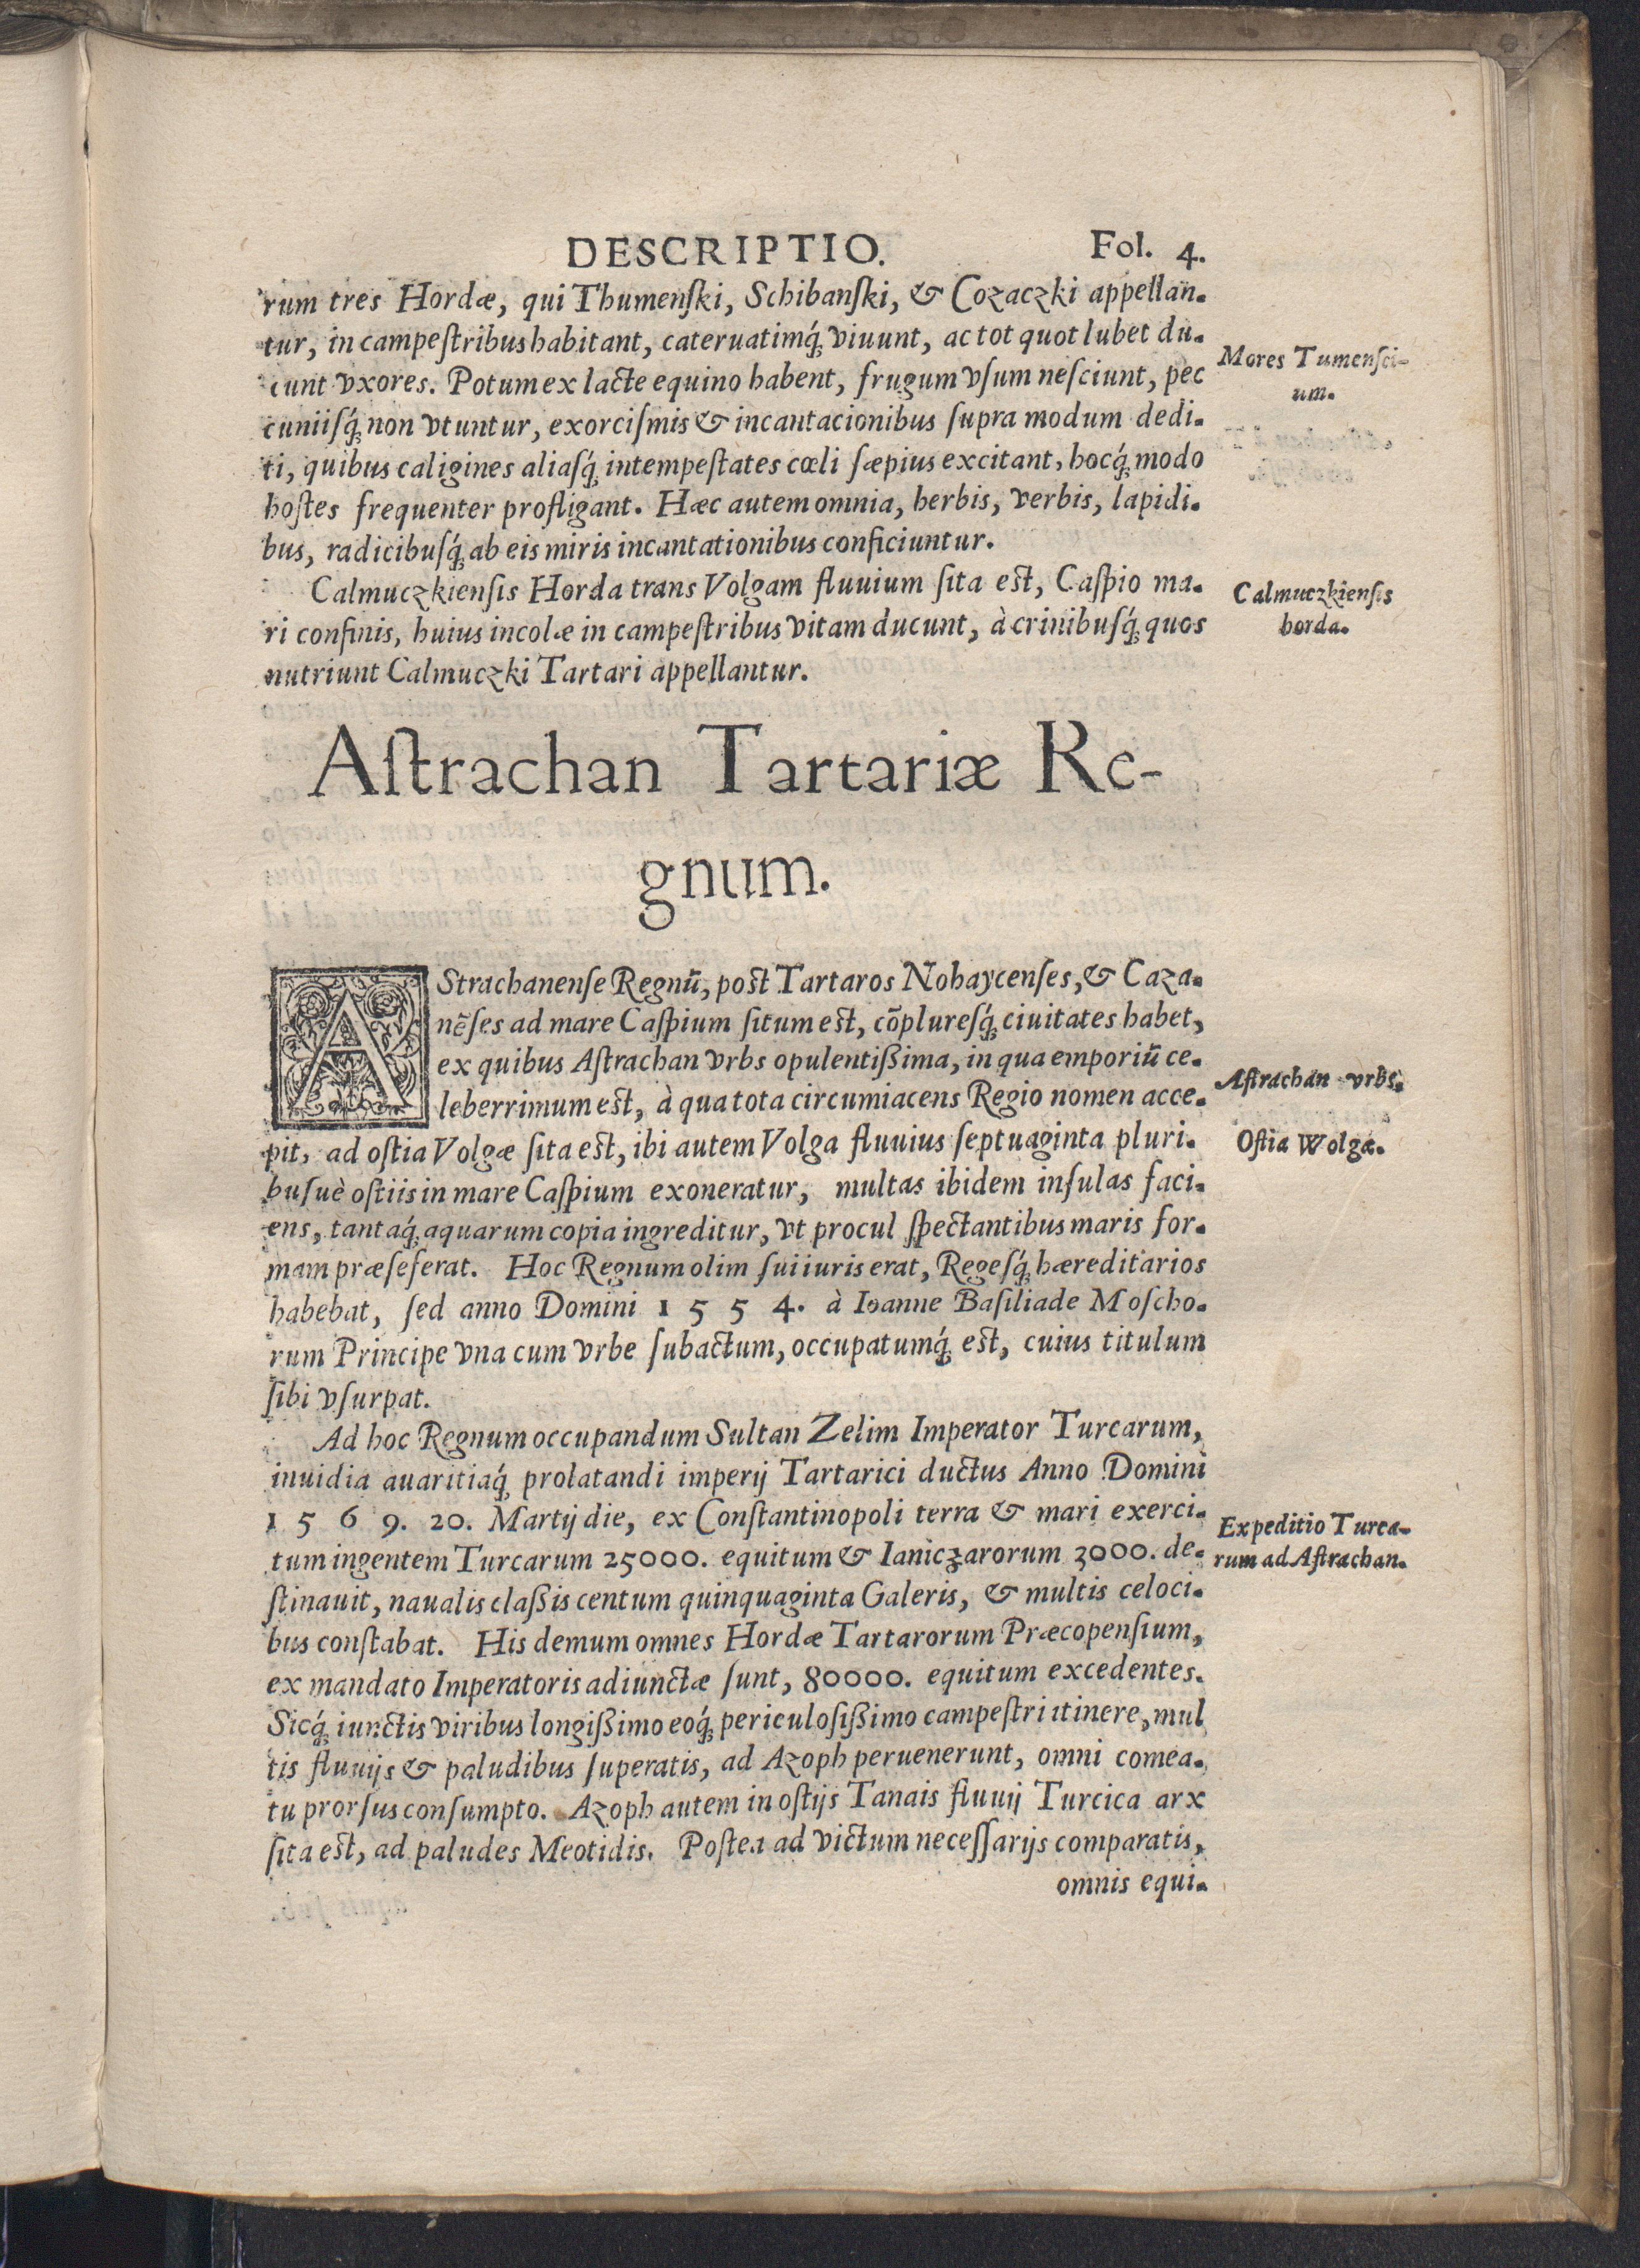 DESCRIPTIO. Fol. 4.
rum tres Hordæ, qui Thumenſki, Schibanſki, & Cozaczki appellan-
tur, in campeſtribus habitant, cateruatimq́; viuunt, ac tot quot lubet du-
cunt vxores. Potum ex lacte equino habent, frugum vſum neſciunt, pec
cuniiſq́; non vtuntur, exorciſmis & incantacionibus ſupra modum dedi-
ti, quibus caligines aliaſq́; intempeſtates cœli ſæpius excitant, hocq́; modo
hoſtes frequenter profligant. Hæc autem omnia, herbis, verbis, lapidi-
bus, radicibuſq́; ab eis miris incantationibus conficiuntur.
Mores Tumenſci-
um.
Calmuczkienſis Horda trans Volgam fluuium ſita eſt, Caſpio ma-
ri confinis, huius incolæ in campeſtribus vitam ducunt, à crinibuſq́; quos
nutriunt Calmuczki Tartari appellantur.
Calmuczkienſis
horda.
Aſtrachan Tartariæ Re-
gnum.
AStrachanenſe Regnū, poſt Tartaros Nohaycenſes, & Caza-
nēſes ad mare Caſpium ſitum eſt, cōplureſq́; ciuitates habet,
ex quibus Aſtrachan vrbs opulentißima, in qua emporiū ce-
leberrimum eſt, à qua tota circumiacens Regio nomen acce-
pit, ad oſtia Volgæ ſita eſt, ibi autem Volga fluuius ſeptuaginta pluri-
buſuè oſtiis in mare Caſpium exoneratur, multas ibidem inſulas faci-
ens, tantaq́; aquarum copia ingreditur, vt procul ſpectantibus maris for-
mam præſeferat. Hoc Regnum olim ſui iuris erat, Regeſq́; hæreditarios
habebat, ſed anno Domini 1 5 5 4. à Ioanne Baſiliade Moſcho-
rum Principe vna cum vrbe ſubactum, occupatumq́; eſt, cuius titulum
ſibi vſurpat.
Aſtrachan vrbs.
Oſtia Wolgæ.
Ad hoc Regnum occupandum Sultan Zelim Imperator Turcarum,
inuidia auaritiaq́; prolatandi imperij Tartarici ductus Anno Domini
1 5 6 9. 20. Martij die, ex Conſtantinopoli terra & mari exerci-
tum ingentem Turcarum 25000. equitum & Ianiczarorum 3000. de-
ſtinauit, naualis claßis centum quinquaginta Galeris, & multis celoci-
bus conſtabat. His demum omnes Hordæ Tartarorum Præcopenſium,
ex mandato Imperatoris adiunctæ ſunt, 80000. equitum excedentes.
Sicq́; iunctis viribus longißimo eoq́; periculoſißimo campeſtri itinere, mul
tis fluuijs & paludibus ſuperatis, ad Azoph peruenerunt, omni comea-
tu prorſus conſumpto. Azoph autem in oſtijs Tanais fluuij Turcica arx
ſita eſt, ad paludes Meotidis. Poſtea ad victum neceſſarijs comparatis,
omnis equi-
Expeditio Turca-
rum ad Aſtrachan.